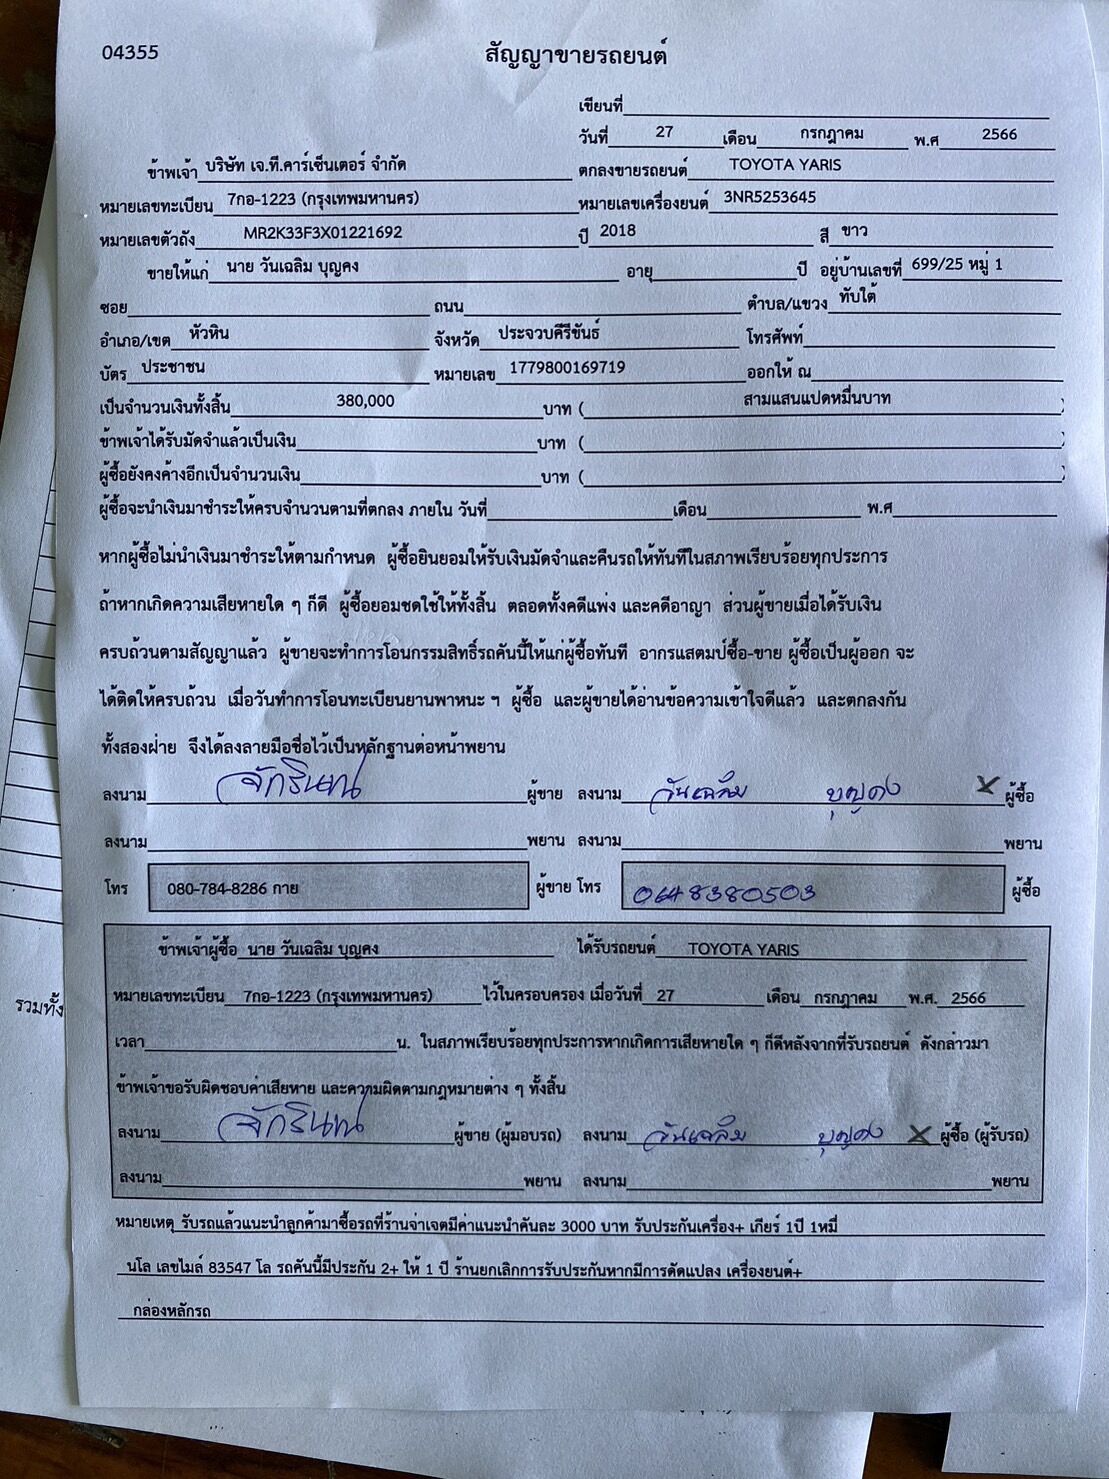 04355
สัญญาขายรถยนต์
เขียนที่
วันที่ 27 เดือน กรกฎาคม พ.ศ 2566
ข้าพเจ้า บริษัท เจ.ที.คาร์เซ็นเตอร์ จำกัด ตกลงขายรถยนต์ TOYOTA YARIS
หมายเลขทะเบียน 7กอ-1223 (กรุงเทพมหานคร) หมายเลขเครื่องยนต์ 3NR5253645
หมายเลขตัวถัง MR2K33F3X01221692 ปี 2018 สี ขาว
ขายให้แก่ นาย วันเฉลิม บุญคง อายุ ปี อยู่บ้านเลขที่ 699/25 หมู่ 1
ซอย ถนน ตำบล/แขวง ทับใต้
อำเภอ/เขต หัวหิน จังหวัด ประจวบคีรีขันธ์ โทรศัพท์
บัตร ประชาชน หมายเลข 1779800169719 ออกให้ ณ
เป็นจำนวนเงินทั้งสิ้น 380,000 บาท ( สามแสนแปดหมื่นบาท )
ข้าพเจ้าได้รับมัดจำแล้วเป็นเงิน บาท ( )
ผู้ซื้อยังคงค้างอีกเป็นจำนวนเงิน บาท ( )
ผู้ซื้อจะนำเงินมาชำระให้ครบจำนวนตามที่ตกลง ภายใน วันที่ เดือน พ.ศ
หากผู้ซื้อไม่นำเงินมาชำระให้ตามกำหนด ผู้ซื้อยินยอมให้รับเงินมัดจำและคืนรถให้ทันทีในสภาพเรียบร้อยทุกประการ
ถ้าหากเกิดความเสียหายใด ๆ ก็ดี ผู้ซื้อยอมชดใช้ให้ทั้งสิ้น ตลอดทั้งคดีแพ่ง และคดีอาญา ส่วนผู้ขายเมื่อได้รับเงิน
ครบถ้วนตามสัญญาแล้ว ผู้ขายจะทำการโอนกรรมสิทธิ์รถคันนี้ให้แก่ผู้ซื้อทันที อากรแสตมป์ซื้อ-ขาย ผู้ซื้อเป็นผู้ออก จะ
ได้ติดให้ครบถ้วน เมื่อวันทำการโอนทะเบียนยานพาหนะ ฯ ผู้ซื้อ และผู้ขายได้อ่านข้อความเข้าใจดีแล้ว และตกลงกัน
ทั้งสองฝ่าย จึงได้ลงลายมือชื่อไว้เป็นหลักฐานต่อหน้าพยาน
ลงนาม จักรินทน์ ผู้ขาย ลงนาม วันเฉลิม บุญคง X ผู้ซื้อ
ลงนาม พยาน ลงนาม พยาน
โทร 080-784-8286 กาย ผู้ขาย โทร 0648380503 ผู้ซื้อ
ข้าพเจ้าผู้ซื้อ นาย วันเฉลิม บุญคง ได้รับรถยนต์ TOYOTA YARIS
หมายเลขทะเบียน 7กอ-1223 (กรุงเทพมหานคร) ไว้ในครอบครอง เมื่อวันที่ 27 เดือน กรกฎาคม พ.ศ. 2566
เวลา น. ในสภาพเรียบร้อยทุกประการหากเกิดการเสียหายใด ๆ ก็ดีหลังจากที่รับรถยนต์ ดังกล่าวมา
ข้าพเจ้าขอรับผิดชอบค่าเสียหาย และความผิดตามกฎหมายต่าง ๆ ทั้งสิ้น
ลงนาม จักรินทน์ ผู้ขาย (ผู้มอบรถ) ลงนาม วันเฉลิม บุญคง X ผู้ซื้อ (ผู้รับรถ)
ลงนาม พยาน ลงนาม พยาน
หมายเหตุ รับรถแล้วแนะนำลูกค้ามาซื้อรถที่ร้านจ่าเจตมีค่าแนะนำคันละ 3000 บาท รับประกันเครื่อง+ เกียร์ 1ปี 1หมื่
นโล เลขไมล์ 83547 โล รถคันนี้มีประกัน 2+ ให้ 1 ปี ร้านยกเลิกการรับประกันหากมีการดัดแปลง เครื่องยนต์+
กล่องหลักรถ
รวมทั้ง